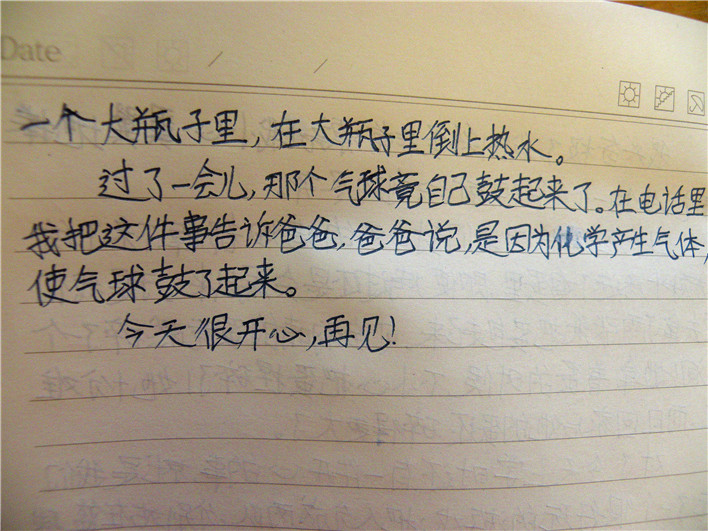 Date / /
一个大瓶子里,在大瓶子里倒上热水。
过了一会儿,那个气球竟自己鼓起来了。在电话里
我把这件事告诉爸爸,爸爸说,是因为化学产生气体,
使气球鼓了起来。
今天很开心,再见!